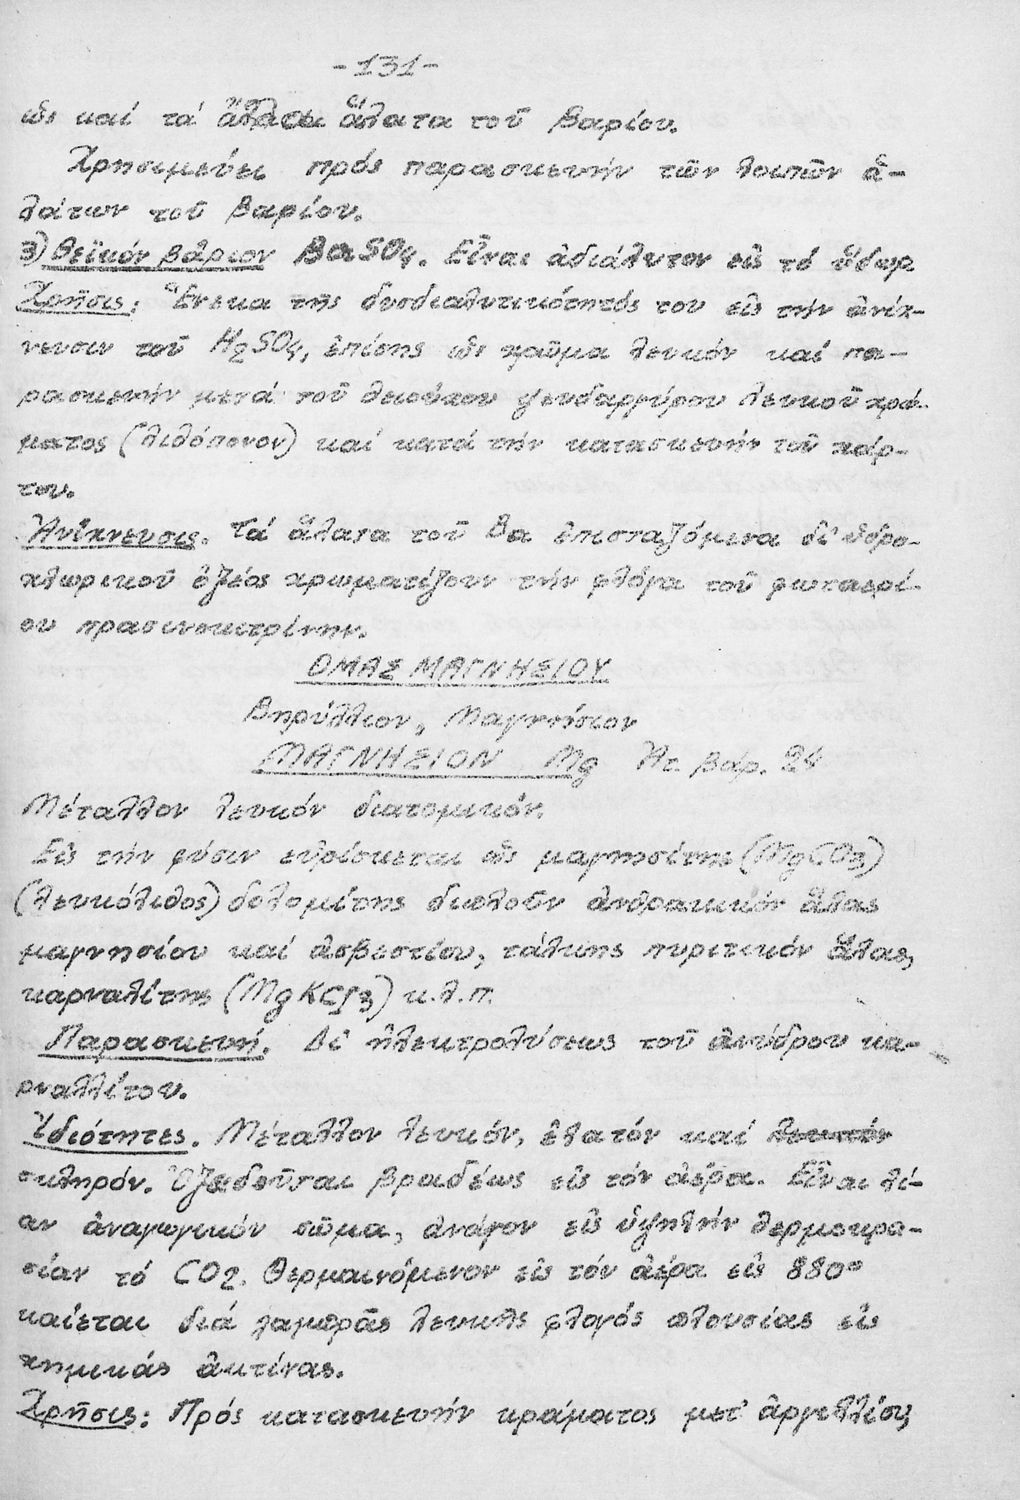 -131-
ὡς καί τά ἄλλα ἅλατα τοῦ Βαρίου.
Χρησιμεύει πρός παρασκευήν τῶν λοιπῶν ἁ-
λάτων τοῦ βαρίου.
3) Θεϊκόν βάριον BaSO4. Εἶναι ἀδιάλυτον εἰς τό ὕδωρ
Χρῆσις: Ἕνεκα τῆς δυσδιαλυτικότητός του εἰς τήν ἀνίχ-
νευσιν τοῦ H2SO4, ἐπίσης ὡς χρῶμα λευκόν καί πα-
ρασκευήν μετά τοῦ θειούχου ψευδαργύρου λευκοῦ χρώ-
ματος (λιθόπονον) καί κατά τήν κατασκευήν τοῦ χάρ-
του.
Ἀνίχνευσις. Τά ἅλατα τοῦ Βα ἐπισταζόμενα δι' ὑδρο-
χλωρικοῦ ὀξέος χρωματίζουν τήν φλόγα τοῦ φωταερί-
ου πρασινοκιτρίνην.
ΟΜΑΣ ΜΑΓΝΗΣΙΟΥ
Βηρύλλιον, Μαγνήσιον
ΜΑΓΝΗΣΙΟΝ Mg Ἀτ. βάρ. 24
Μέταλλον λευκόν διατομικόν.
Εἰς τήν φύσιν εὑρίσκεται ὡς μαγνησίτης (MgCO3)
(λευκόλιθος) δολομίτης διπλοῦν ἀνθρακικόν ἅλας
μαγνησίου καί ἀσβεστίου, τάλκης πυριτικόν ἅλας,
καρναλίτης (MgKCl3) κ.λ.π.
Παρασκευή. Δι' ἠλεκτρολύσεως τοῦ ἀνύδρου κα-
ρναλλίτου.
Ἰδιότητες. Μέταλλον λευκόν, ἐλατόν καί λευκόν
σκληρόν. Ὀξειδοῦται βραδέως εἰς τόν ἀέρα. Εἶναι λί-
αν ἀναγωγικόν σῶμα, ἀνάγον εἰς ὑψηλήν θερμοκρα-
σίαν τό CO2. Θερμαινόμενον εἰς τόν ἀέρα εἰς 880°
καίεται διά λαμπρᾶς λευκῆς φλογός πλουσίας εἰς
χημικάς ἀκτίνας.
Χρῆσις: Πρός κατασκευήν κράματος μετ' ἀργιλλίου,